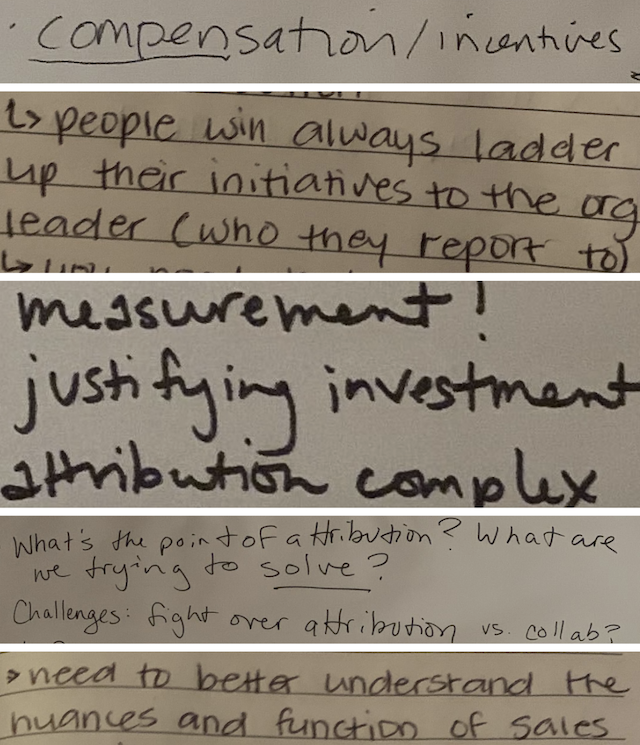 · compensation/incentives
↳ people win always ladder
up their initiatives to the org
leader (who they report to)
measurement!
justifying investment
attribution complex
What's the point of attribution? What are
we trying to solve?
Challenges: fight over attribution vs. collab?
> need to better understand the
nuances and function of sales